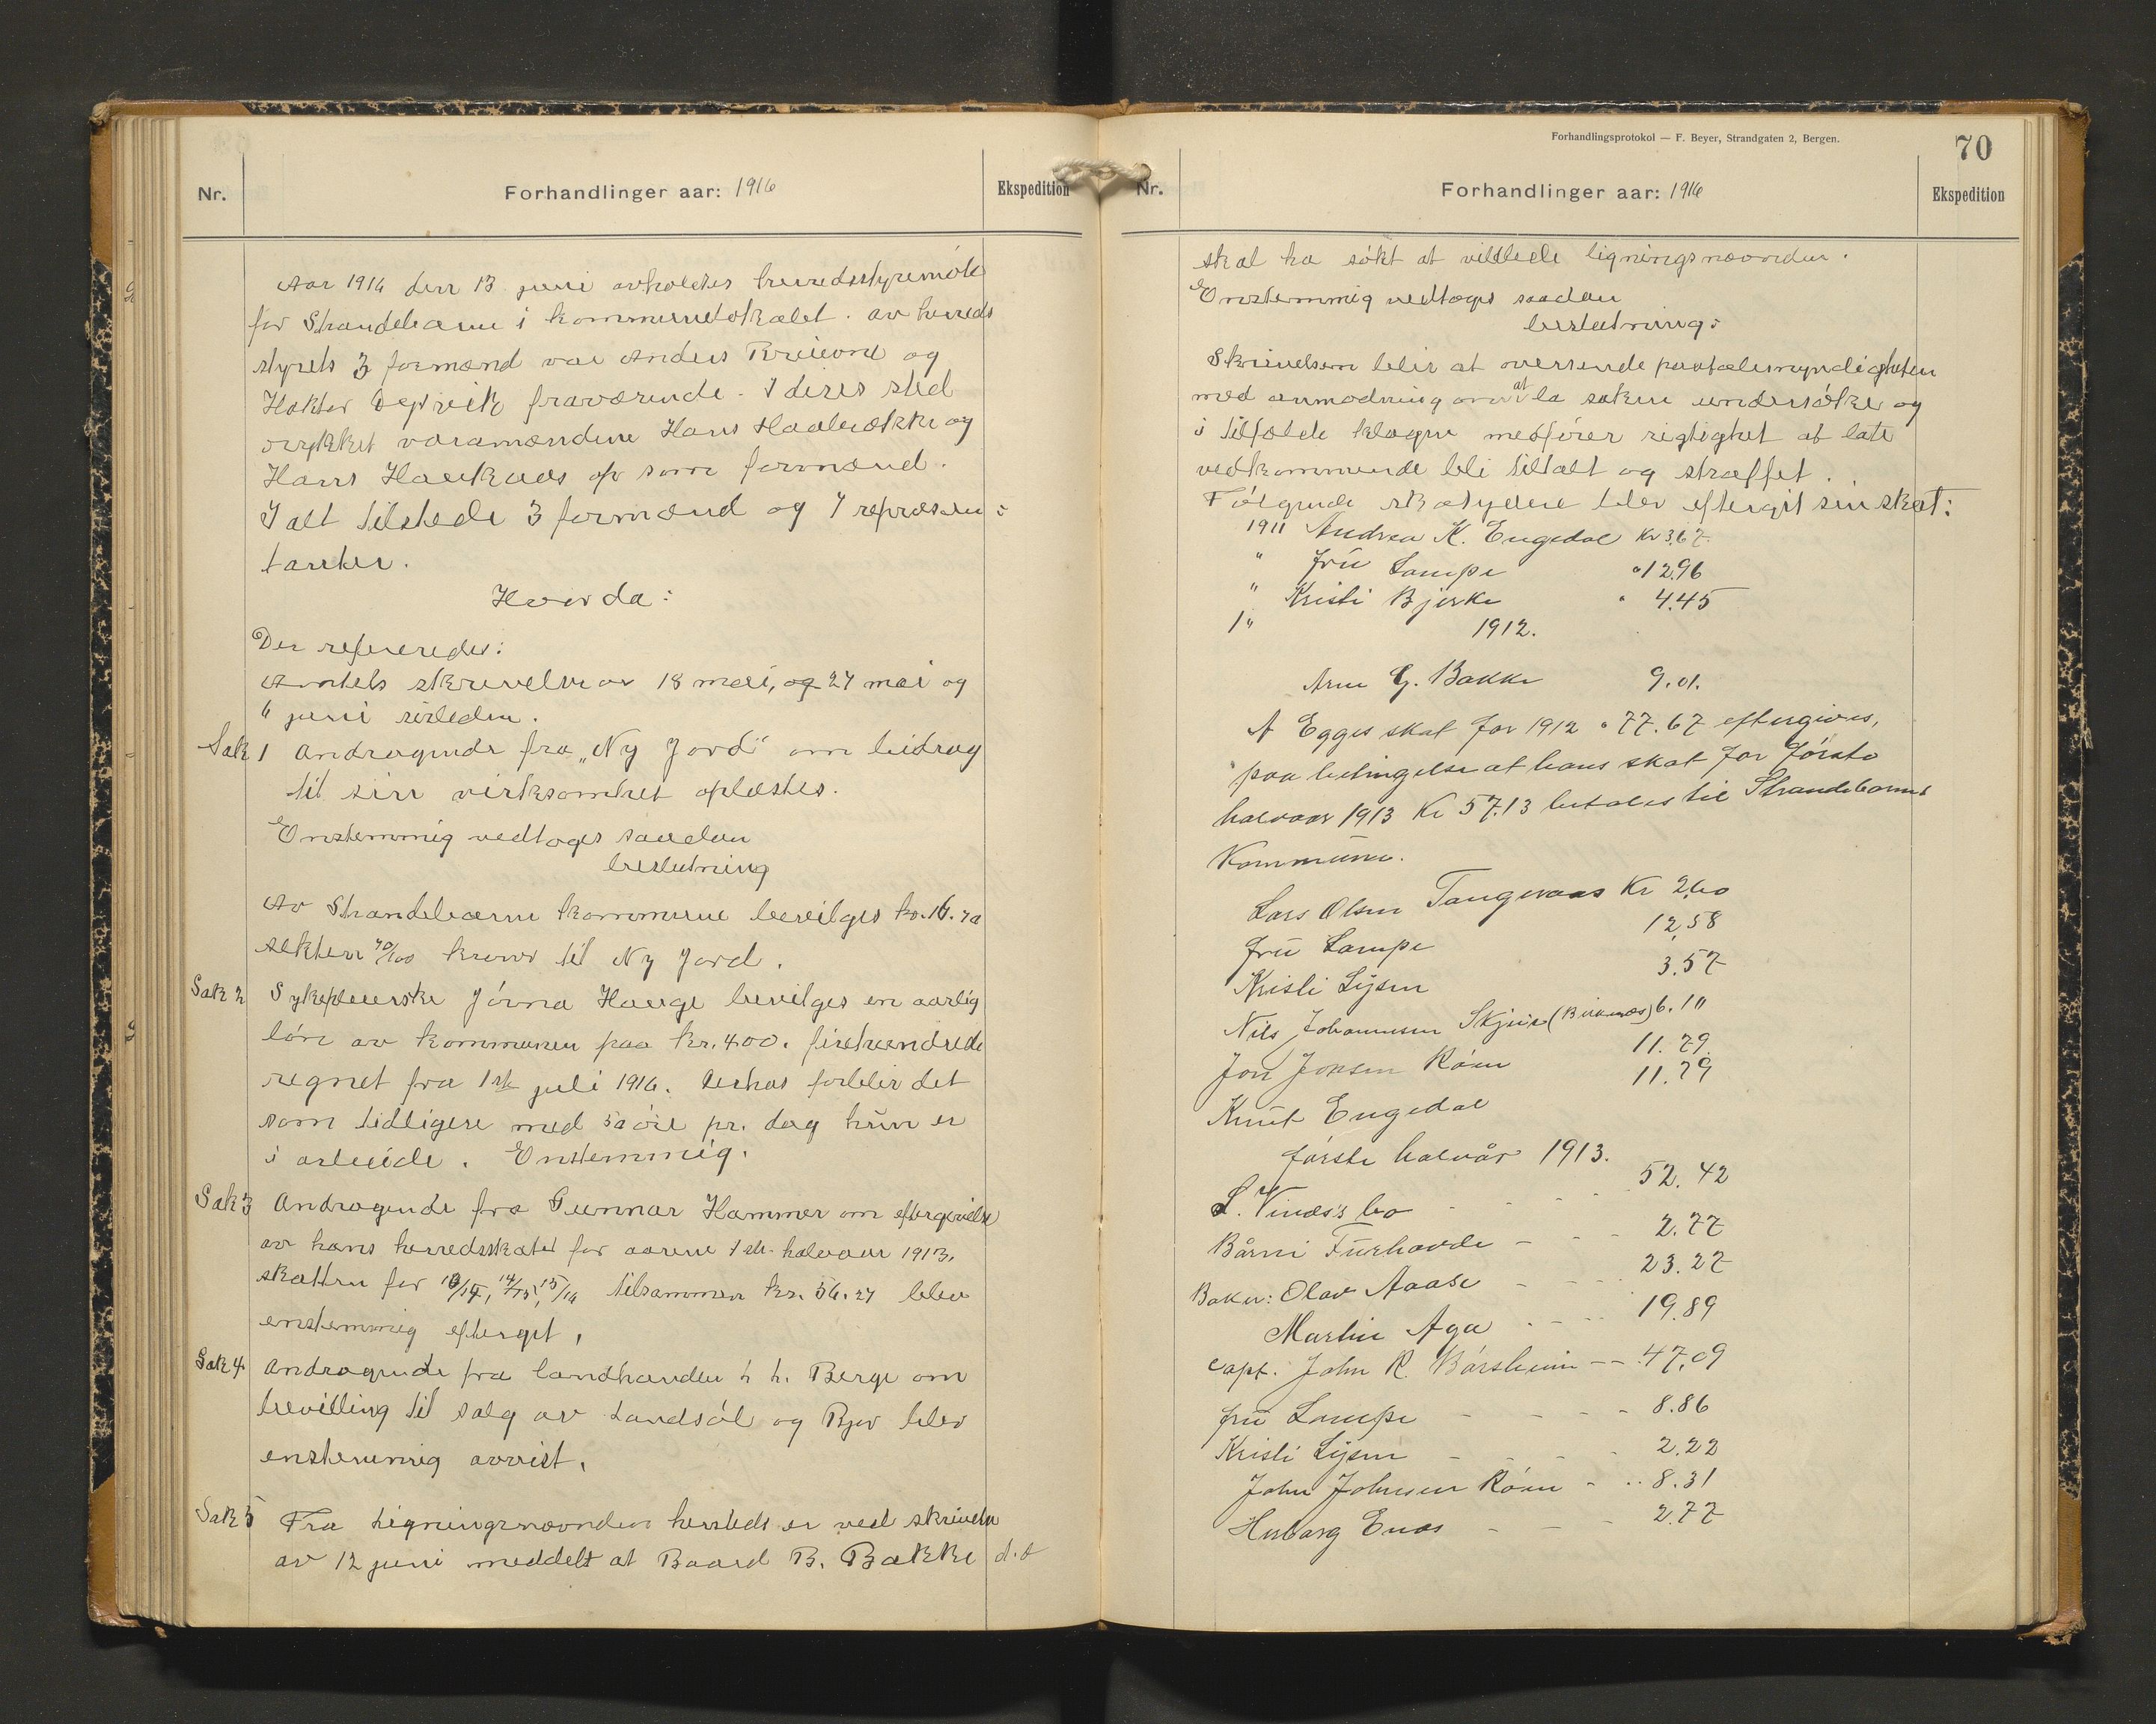 Nr.
Forhandlinger aar: 1916
Ekspedition
Aar 1916 den 13 juni avholdtes herredsstyremöte
for Strandebarm i kommunelokalet. av herreds
styrets 3 formænd var Anders og
Haktor fraværende. I deres sted
rykket varamændene Hans Haalrække og
Hans Haukaas op som formænd.
I alt tilstede 3 formænd og 7 repræsen:
tanter.
Hvorda:
Der refereredes:
Amtets skrivelse av 18 mai, og 27 mai og
6 juni sisleden.
Sak 1 Andragende fra „Ny Jord" om bidrag
til sin virksomhet oplæstes.
Enstemmig vedtoges saadan
beslutning
Av Strandebarm kommune bevilges kr. 16.70
seksten 70/100 kroner til Ny Jord.
Sak 2 Sykepleierske Jórna Hauge bevilges en aarlig
lön av kommunen paa kr. 400. firehundrede
regnet fra 1ste juli 1916. Desuden forblir det
som tidligere med 50 öre pr. dag hun er
i arbeide. Enstemmig.
Sak 3 Andragende fra Gunnar Hammer om eftergivelse
av hans herredsskatter for aarene 1ste halvaar 1913,
skatten for 13/14, 14/15, 15/16 tilsammen kr. 56.27 blev
enstemmig eftergit.
Sak 4 Andragende fra landhandler h. h. Berge om
bevilling til salg av Landsöl og Bjor blev
enstemmig avvist.
Sak 5 Fra Ligningsnævnden herreds er ved skrivelse
av 12 juni meddelt at Baard B. Bakke d.o
Forhandlingsprotokol — F. Beyer, Strandgaten 2, Bergen.
70
Nr.
Forhandlinger aar: 1916
Ekspedition
skal ha sökt at villede ligningsnævnden.
Enstemmig vedtoges saadan
beslutning:
Skrivelsen blir at oversende paatalemyndigheten
med anmodning om at la saken undersöke og
i tilfælde klagen medförer rigtighet at late
vedkommende bli tiltalt og straffet.
Fölgende skatydere blev eftergit sin skat:
1911 Andrea K. Engedal Kr 3,67
" Frü Lampe " 12.96
" Kristi Bjerke " 4.45
1" 1912.
Arne G. Bakke 9.01.
A Egges skat for 1912 " 77.67 eftergives,
paa betingelse at hans skat for förste
halvaar 1913 Kr 57.13 betales til Strandebarms
Kommüne.
Lars Olsen Tangeraas Kr 2,60
Frü Lampe 12,58
Kristi Lijsen 3.57
Nils Johannesen Skjeie (Birkenæs) 6.10
Jon Jonsen Röen 11.79.
Knüt Engedal 11.79
förste halvår 1913.
L. Vinæs's bo - - - 52.42
Bårni Fürehovde - - - 2.77
Baker: Olav Aaase - - - 23.27
Martin Aga - - - 19.89
Capt. John R. Börsheim - - 47.09
frü Lampe - - - - 8.86
Kristi Lijsen - - - - 2.22
John Johnsen Röen - .. 8.31
Herborg Enæs - - - 2.77